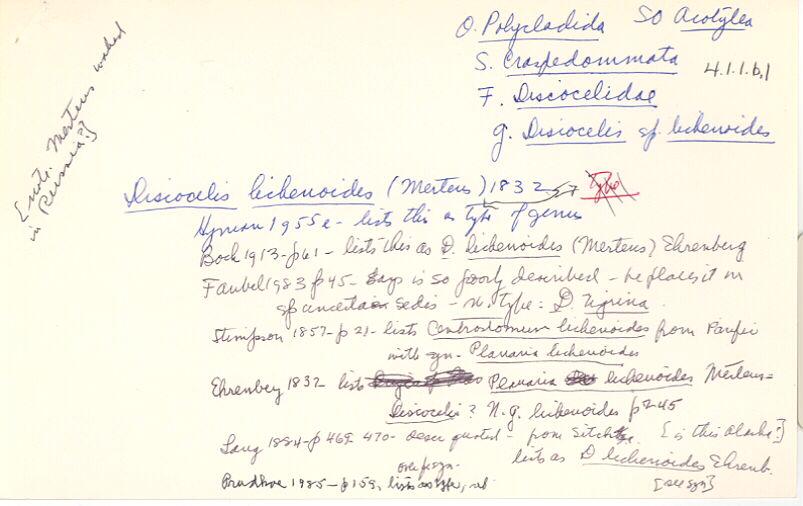 O. Polycladida SO Acotylea
S. Craspedommata 4.1.1.b.1
F. Discocelidae
g. Discocelis sp. lichenoides
[note. Mertens worked
in Russia?]
Discocelis lichenoides (Mertens) 1832 Type
Hyman 1955e - lists this as type of genus
Bock 1913 - p61 - lists this as D. lichenoides (Mertens) Ehrenberg
Faubel 1983 p45 - Says is so poorly described - he places it in
sp incertae sedis - n. type = D. tigrina.
Stimpson 1857 - p 21 - lists Centrostomum lichenoides from Pacific
with syn - Planaria lichenoides
Ehrenberg 1832 lists Planaria lichenoides Mertens =
Discocelis? N.g. lichenoides p 245
Lang 1884 - p 469 470 - descr quoted - from Sitcha. [is this Alaska?]
lists as D lichenoides Ehrenb.
[see syn]
Prudhoe 1985 - p159, lists as type,